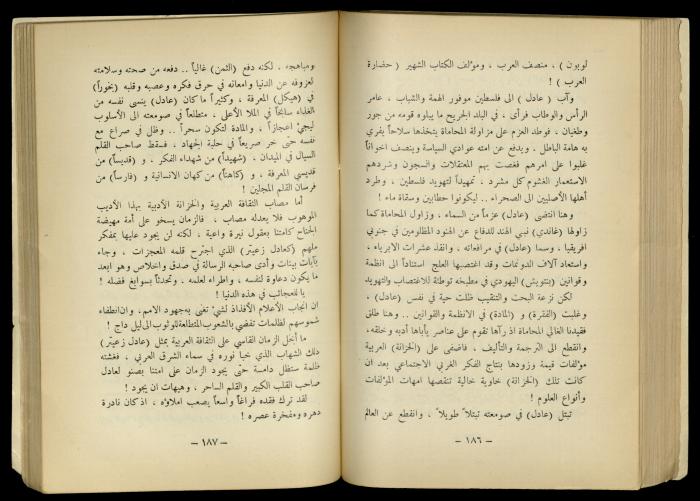 لوبون) ، منصف العرب ، ومؤلف الكتاب الشهير ( حضارة
العرب ) !
وآب ( عادل ) الى فلسطين موفور الهمة والشباب ، عامر
الرأس والوطاب فرأى ، في البلد الجريح ما يبلوه قومه من جور
وطغيان ، فوطد العزم على مزاولة المحاماة يتخذها سلاحاً يفري
به هامة الباطل ، ويدفع عن امته عوادي السياسة وينصف اخواناً
غلبوا على امرهم فغصت بهم المعتقلات والسجون وشردهم
الاستعمار الغشوم كل مشرد ، تمهيداً لتهويد فلسطين ، وطرد
أهلها الأصليين الى الصحراء .. ليكونوا حطابين وسقاة ماء !
وهنا انتضى (عادل) عزماً من السماء ، وزاول المحاماة كما
زاولها (غاندي) نبي الهند للدفاع عن الهنود المظلومين في جنوبي
افريقيا ، وسما (عادل) في مرافعاته ، وانقذ عشرات الابرياء ،
واستعاد آلاف الدونمات وقد اغتصبها العلج استناداً الى انظمة
وقوانين (بنتويش) اليهودي في مطبخه توطئة للاغتصاب والتهويد
لكن نزعة البحث والتنقيب ظلت حية في نفس (عادل) ،
وغلبت (الفقرة) و (المادة) في الانظمة والقوانين .. وهنا طلق
فقيدنا الغالي المحاماة اذ رآها تقوم على عناصر يأباها أدبه وخلقه،
وانقطع الى الترجمة والتأليف ، فأضفى على (الخزانة) العربية
مؤلفات قيمة وزودها بنتاج الفكر الغربي الاجتماعي بعد ان
كانت تلك (الخزانة) خاوية خالية تنقصها امهات المؤلفات
وأنواع العلوم !
تبتل (عادل) في صومعته تبتلاً طويلاً ، وانقطع عن العالم
- ١٨٦ -
ومباهجه ، لكنه دفع (الثمن) غالياً .. دفعه من صحته وسلامته
لعزوفه عن الدنيا وامعانه في حرق فكره وعصبه وقلبه (بخوراً)
في (هيكل) المعرفة ، وكثيراً ما كان (عادل) ينسى نفسه من
الغذاء سابحاً في الملا الأعلى ، متطلعاً في صومعته الى الأسلوب
ليجيء اعجازاً ، والمادة لتكون سحراً .. وظل في صراع مع
نفسه حتى خر صريعاً في حلبة الجهاد ، فسقط صاحب القلم
السيال في الميدان ، (شهيداً) من شهداء الفكر ، و (قديساً) من
قديسي المعرفة ، و (كاهناً) من كهان الانسانية و (فارساً) من
فرسان القلم المجلين !
أما مصاب الثقافة العربية والخزانة الأدبية بهذا الأديب
الموهوب فلا يعدله مصاب ، فالزمان يسخو على أمة مهيضة
الجناح كامتنا بعقول نيرة واعية ، لكنه لن يجود عليها بمفكر
ملهم (كعادل زعيتر) الذي اجترح قلمه المعجزات ، وجاء
بآيات بينات وأدى صاحبه الرسالة في صدق واخلاص وهو ابعد
ما يكون دعاوة لنفسه ، واطراء لعلمه ، وتحدثاً بسوابغ فضله !
يا للعجائب في هذه الدنيا !
ان انجاب الأعلام الأفذاذ لشيء تغني به جهود الامم، وان انطفاء
شموسهم لظلمات تفضي بالشعوب المتطلعة للوثوب الى ليل داج !
ما أبخل الزمان القاسي على الثقافة العربية بمثل (عادل زعيتر)
ذلك الشهاب الذي خبا نوره في سماء الشرق العربي ، فغشته
ظلمة ستظل دامسة حتى يجود الزمان على امتنا بصنو لعادل
صاحب القلب الكبير والقلم الساحر ، وهيهات ان يجود !
لقد ترك فقده فراغاً واسعاً يصعب املاؤه ، اذ كان نادرة
دهره ومفخرة عصره !
- ١٨٧ -